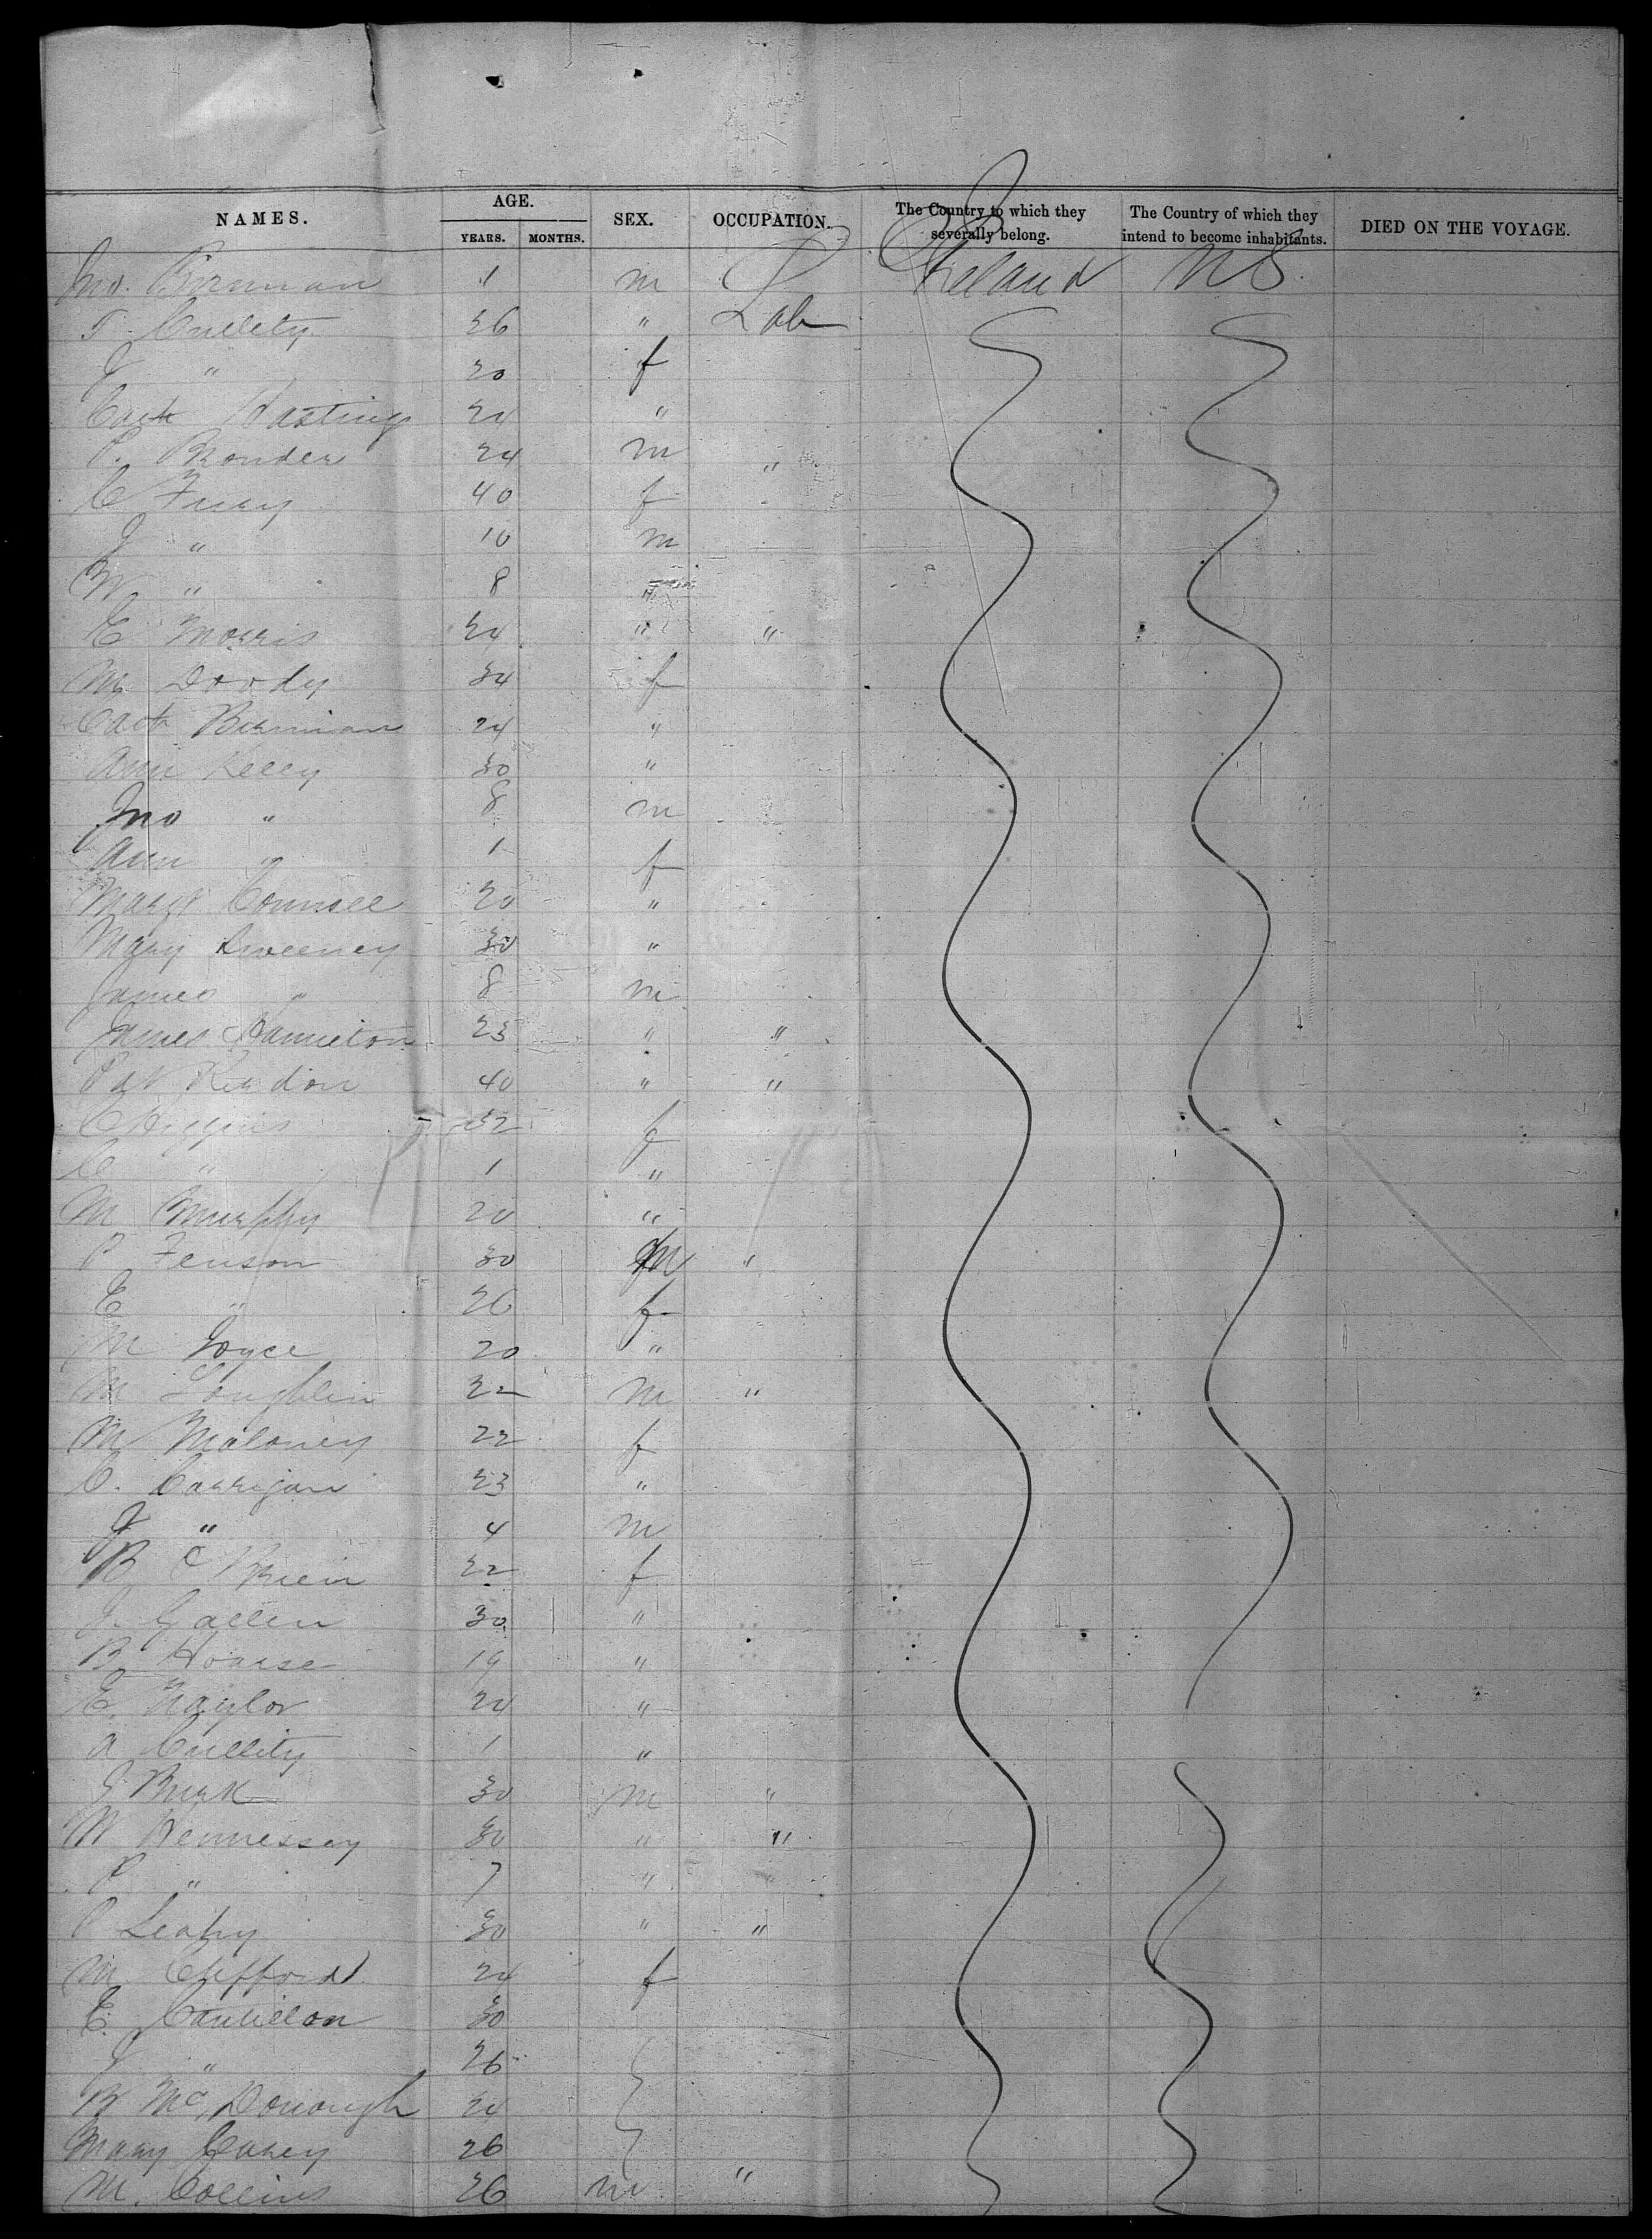 NAMES. AGE. YEARS. MONTHS. SEX. OCCUPATION. The Country to which they severally belong. The Country of which they intend to become inhabitants. DIED ON THE VOYAGE.
Jno. 1 m Ireland US
T. Cullity 26 " Lab
" 20 f
Cath Hastings 24 "
P. Bronder 24 m "
C Furey 40 f
J " 10 m
W " 8 "
E Morris 24 " "
M Doody 34 f
Cath Birmian 24 "
Ann Kelly 30 "
Jno " 8 m
Ann " 1 f
Margt Connell 20 "
Mary Sweeney 30 "
James " 8 m
James Hamilton 23 " "
Pat 40 " "
C Higgins 32 f
C " 1 "
M Murphy 20 "
P Fenson 30 m "
E " 26 f
M Joyce 20 "
M Loughlin 22 m "
M Maloney 22 f
C. Carrigan 23 "
J " 4 m
B O'Brien 22 f
J. Gallen 30 "
B Hoarse 19 "
E. Naylor 24 "
A Cullity 1 "
J Burk 30 m "
W Hennessey 30 " "
P " 7 " "
P Leahy 30 " "
M Clifford 24 f
E. Cantillon 30
J " 26
B McDonough 24
Mary Carey 26
M. Collins 26 m "